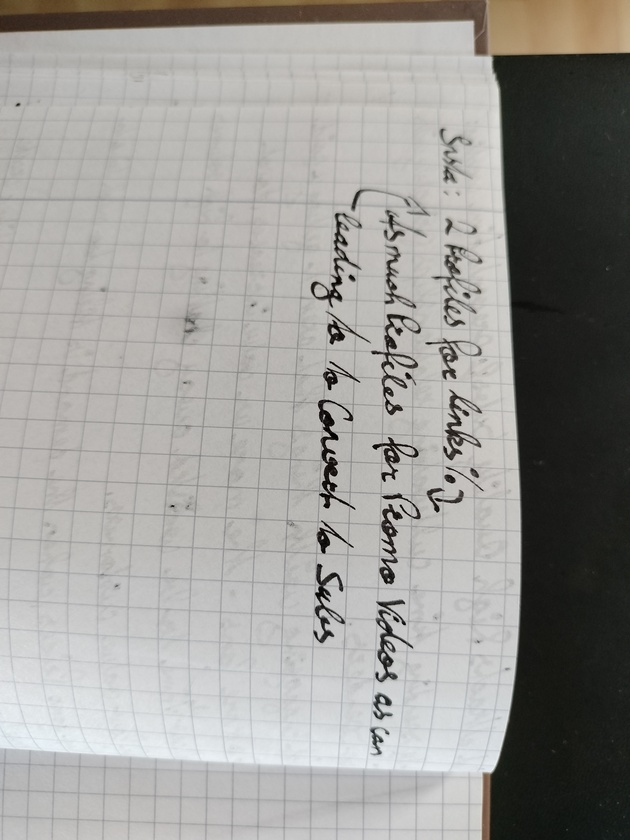 Insta: 2 Profiles for links % ↓
As much Profiles for Promo Videos as can
leading to to Convert to Subs